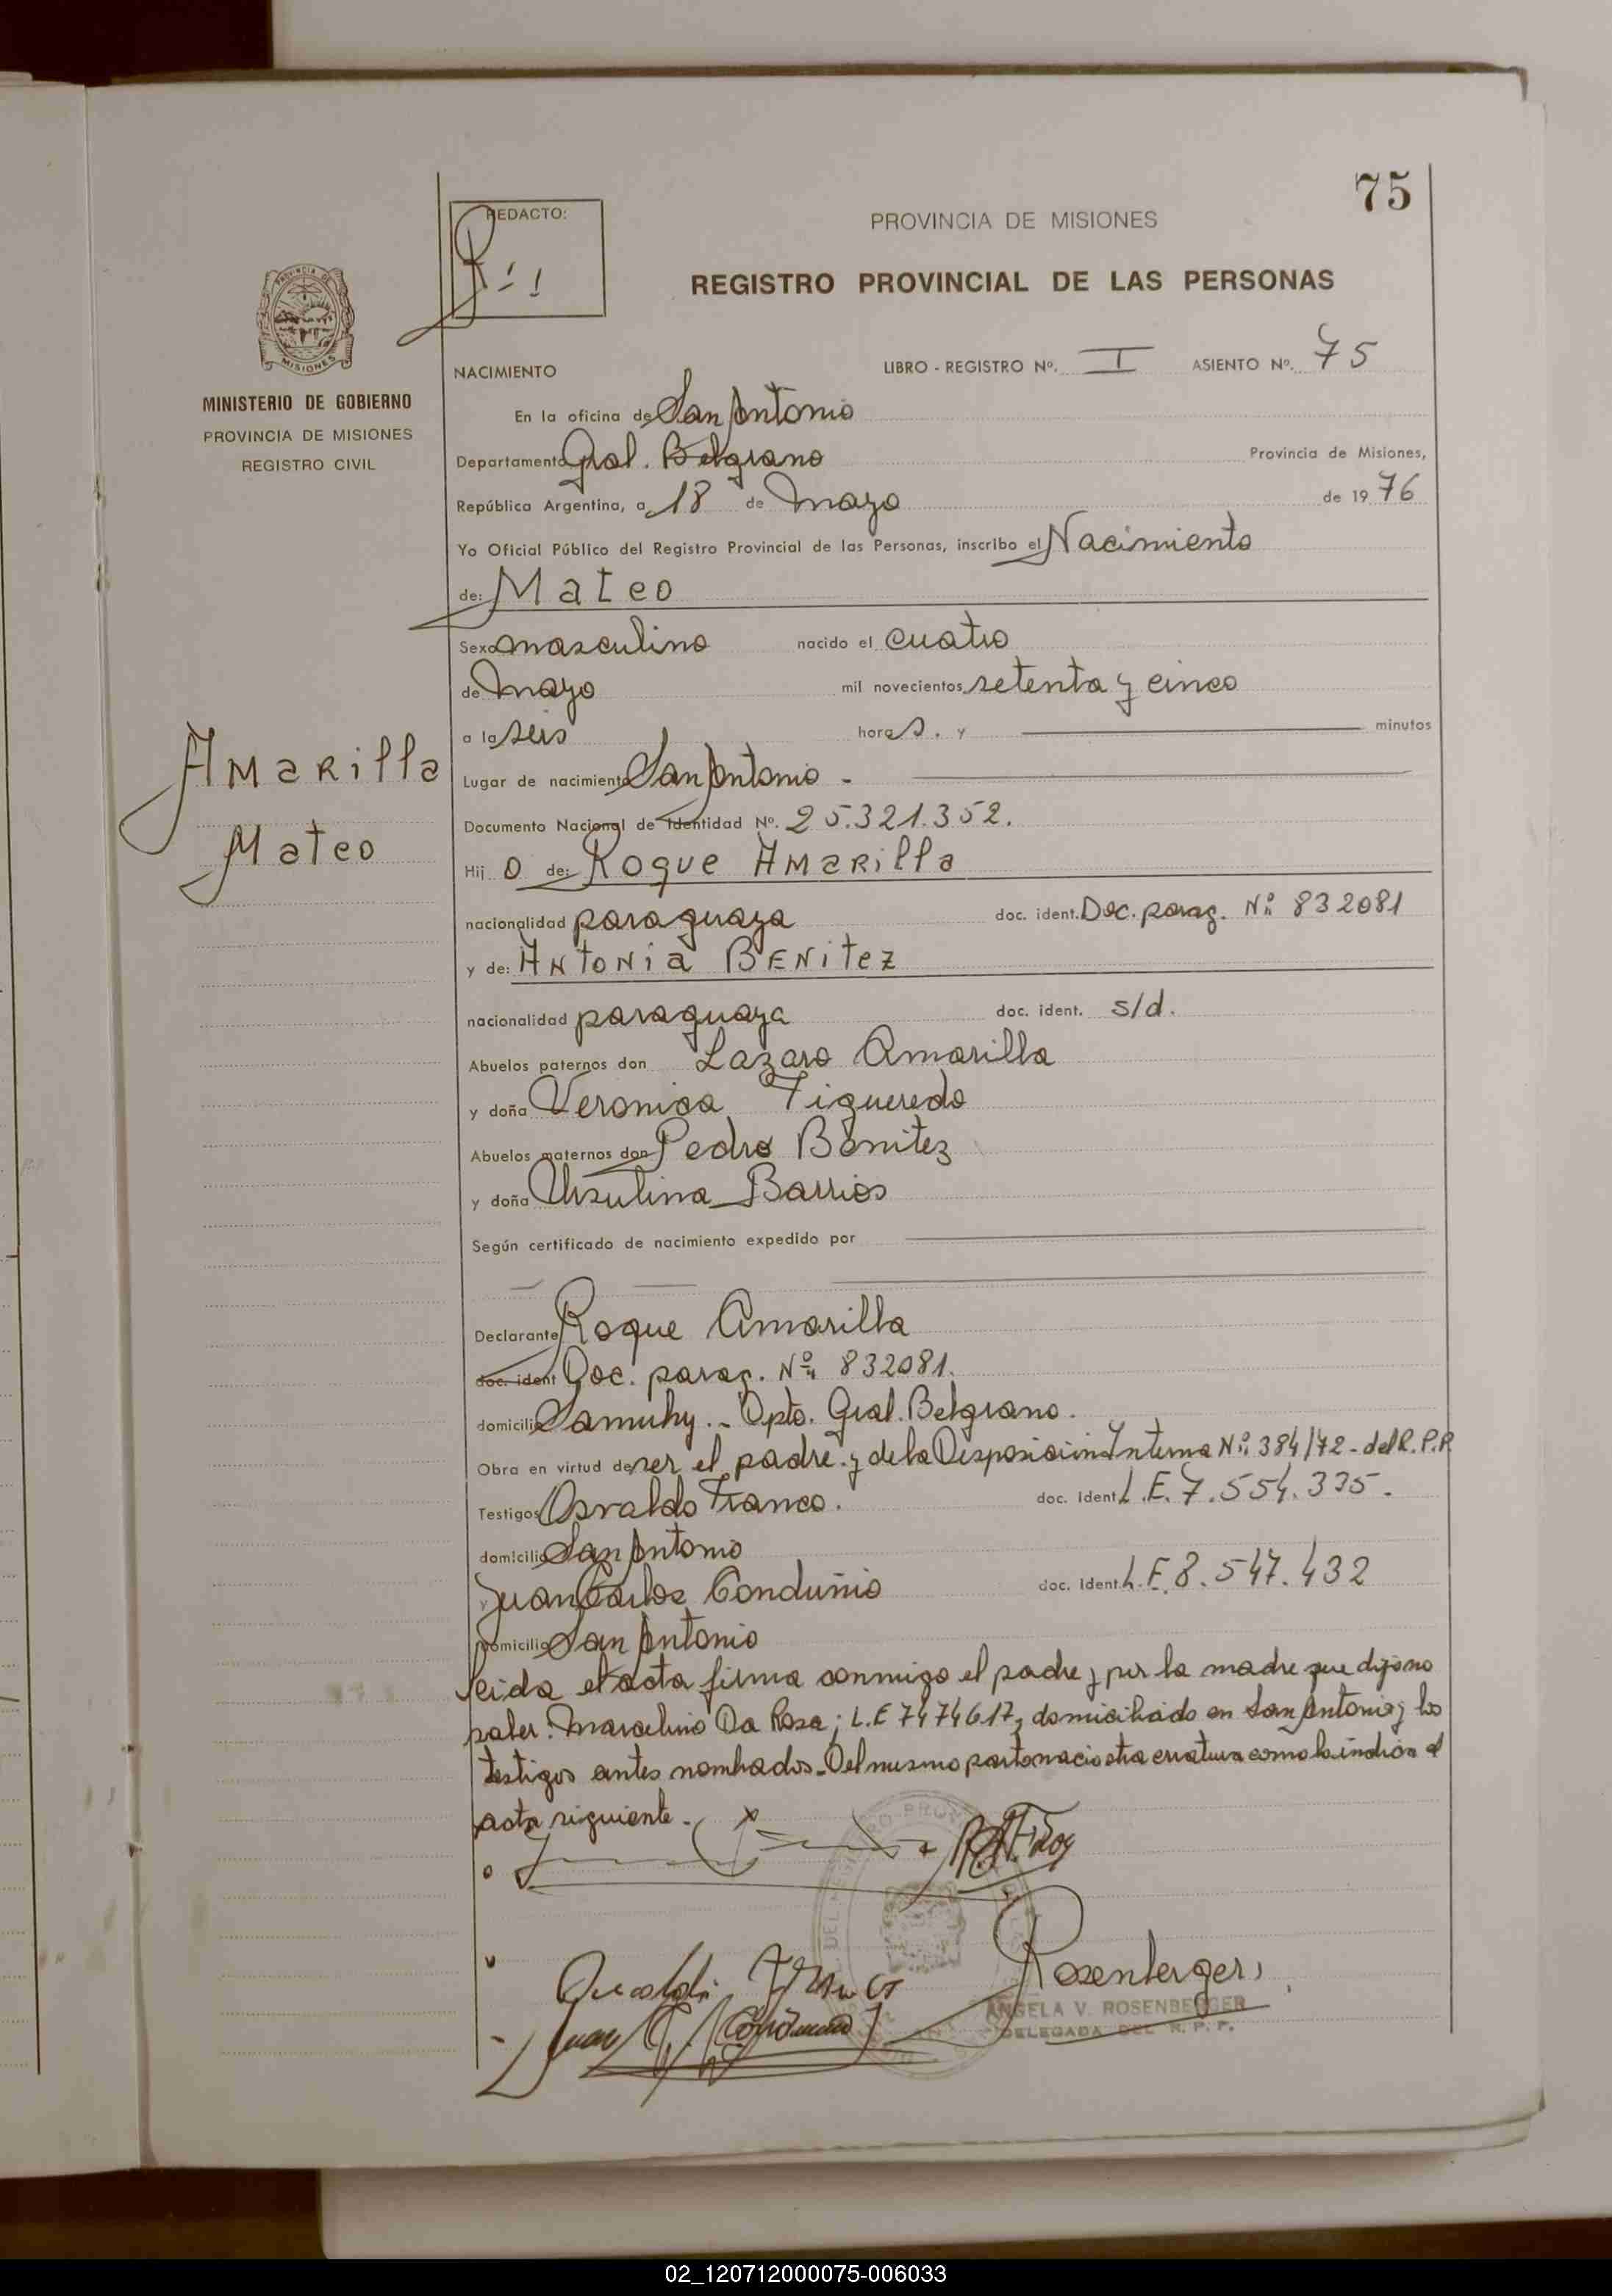 75
REDACTO:
PROVINCIA DE MISIONES
REGISTRO PROVINCIAL DE LAS PERSONAS
MISIONES
MINISTERIO DE GOBIERNO
PROVINCIA DE MISIONES
REGISTRO CIVIL
NACIMIENTO LIBRO - REGISTRO Nº. I ASIENTO Nº. 75
En la oficina de San Antonio
Departamento Gral. Belgrano Provincia de Misiones,
República Argentina, a 18 de Mayo de 19 76
Yo Oficial Público del Registro Provincial de las Personas, inscribo el Nacimiento
de: Mateo
Sexo masculino nacido el cuatro
de Mayo mil novecientos setenta y cinco
a la seis horas. y minutos
Amarilla
Mateo
Lugar de nacimiento San Antonio -
Documento Nacional de Identidad Nº. 25.321.352.
Hij o de: Roque Amarilla
nacionalidad paraguaya doc. ident. Doc. parag. Nº 832081
y de: Antonia Benitez
nacionalidad paraguaya doc. ident. s/d.
Abuelos paternos don Lazaro Amarilla
y doña Veronica Figueredo
Abuelos maternos don Pedro Benitez
y doña Ursulina Barrios
Según certificado de nacimiento expedido por
Declarante Roque Amarilla
doc. ident Doc. parag. Nº 832081.
domicilio Samuhy. - Dpto. Gral. Belgrano.
Obra en virtud de ser el padre y de la Disposición Interna Nº 384/72 - del R.P.P
Testigos Osvaldo Franco. doc. ident L.E. 7.554.335.
domicilio San Antonio
y Juan Carlos Conduñio doc. ident L.E. 8.547.432
domicilio San Antonio
Leida el acta firma conmigo el padre, por la madre que dijo no
saber: Marcelino Da Rosa; L.E 7474617, domiciliado en San Antonio y los
testigos antes nombrados. Del mismo parto nacio otra criatura como lo indica el
acta siguiente.
Rosenberger
ANGELA V. ROSENBERGER
DELEGADA DEL R. P. P.
02_120712000075-006033